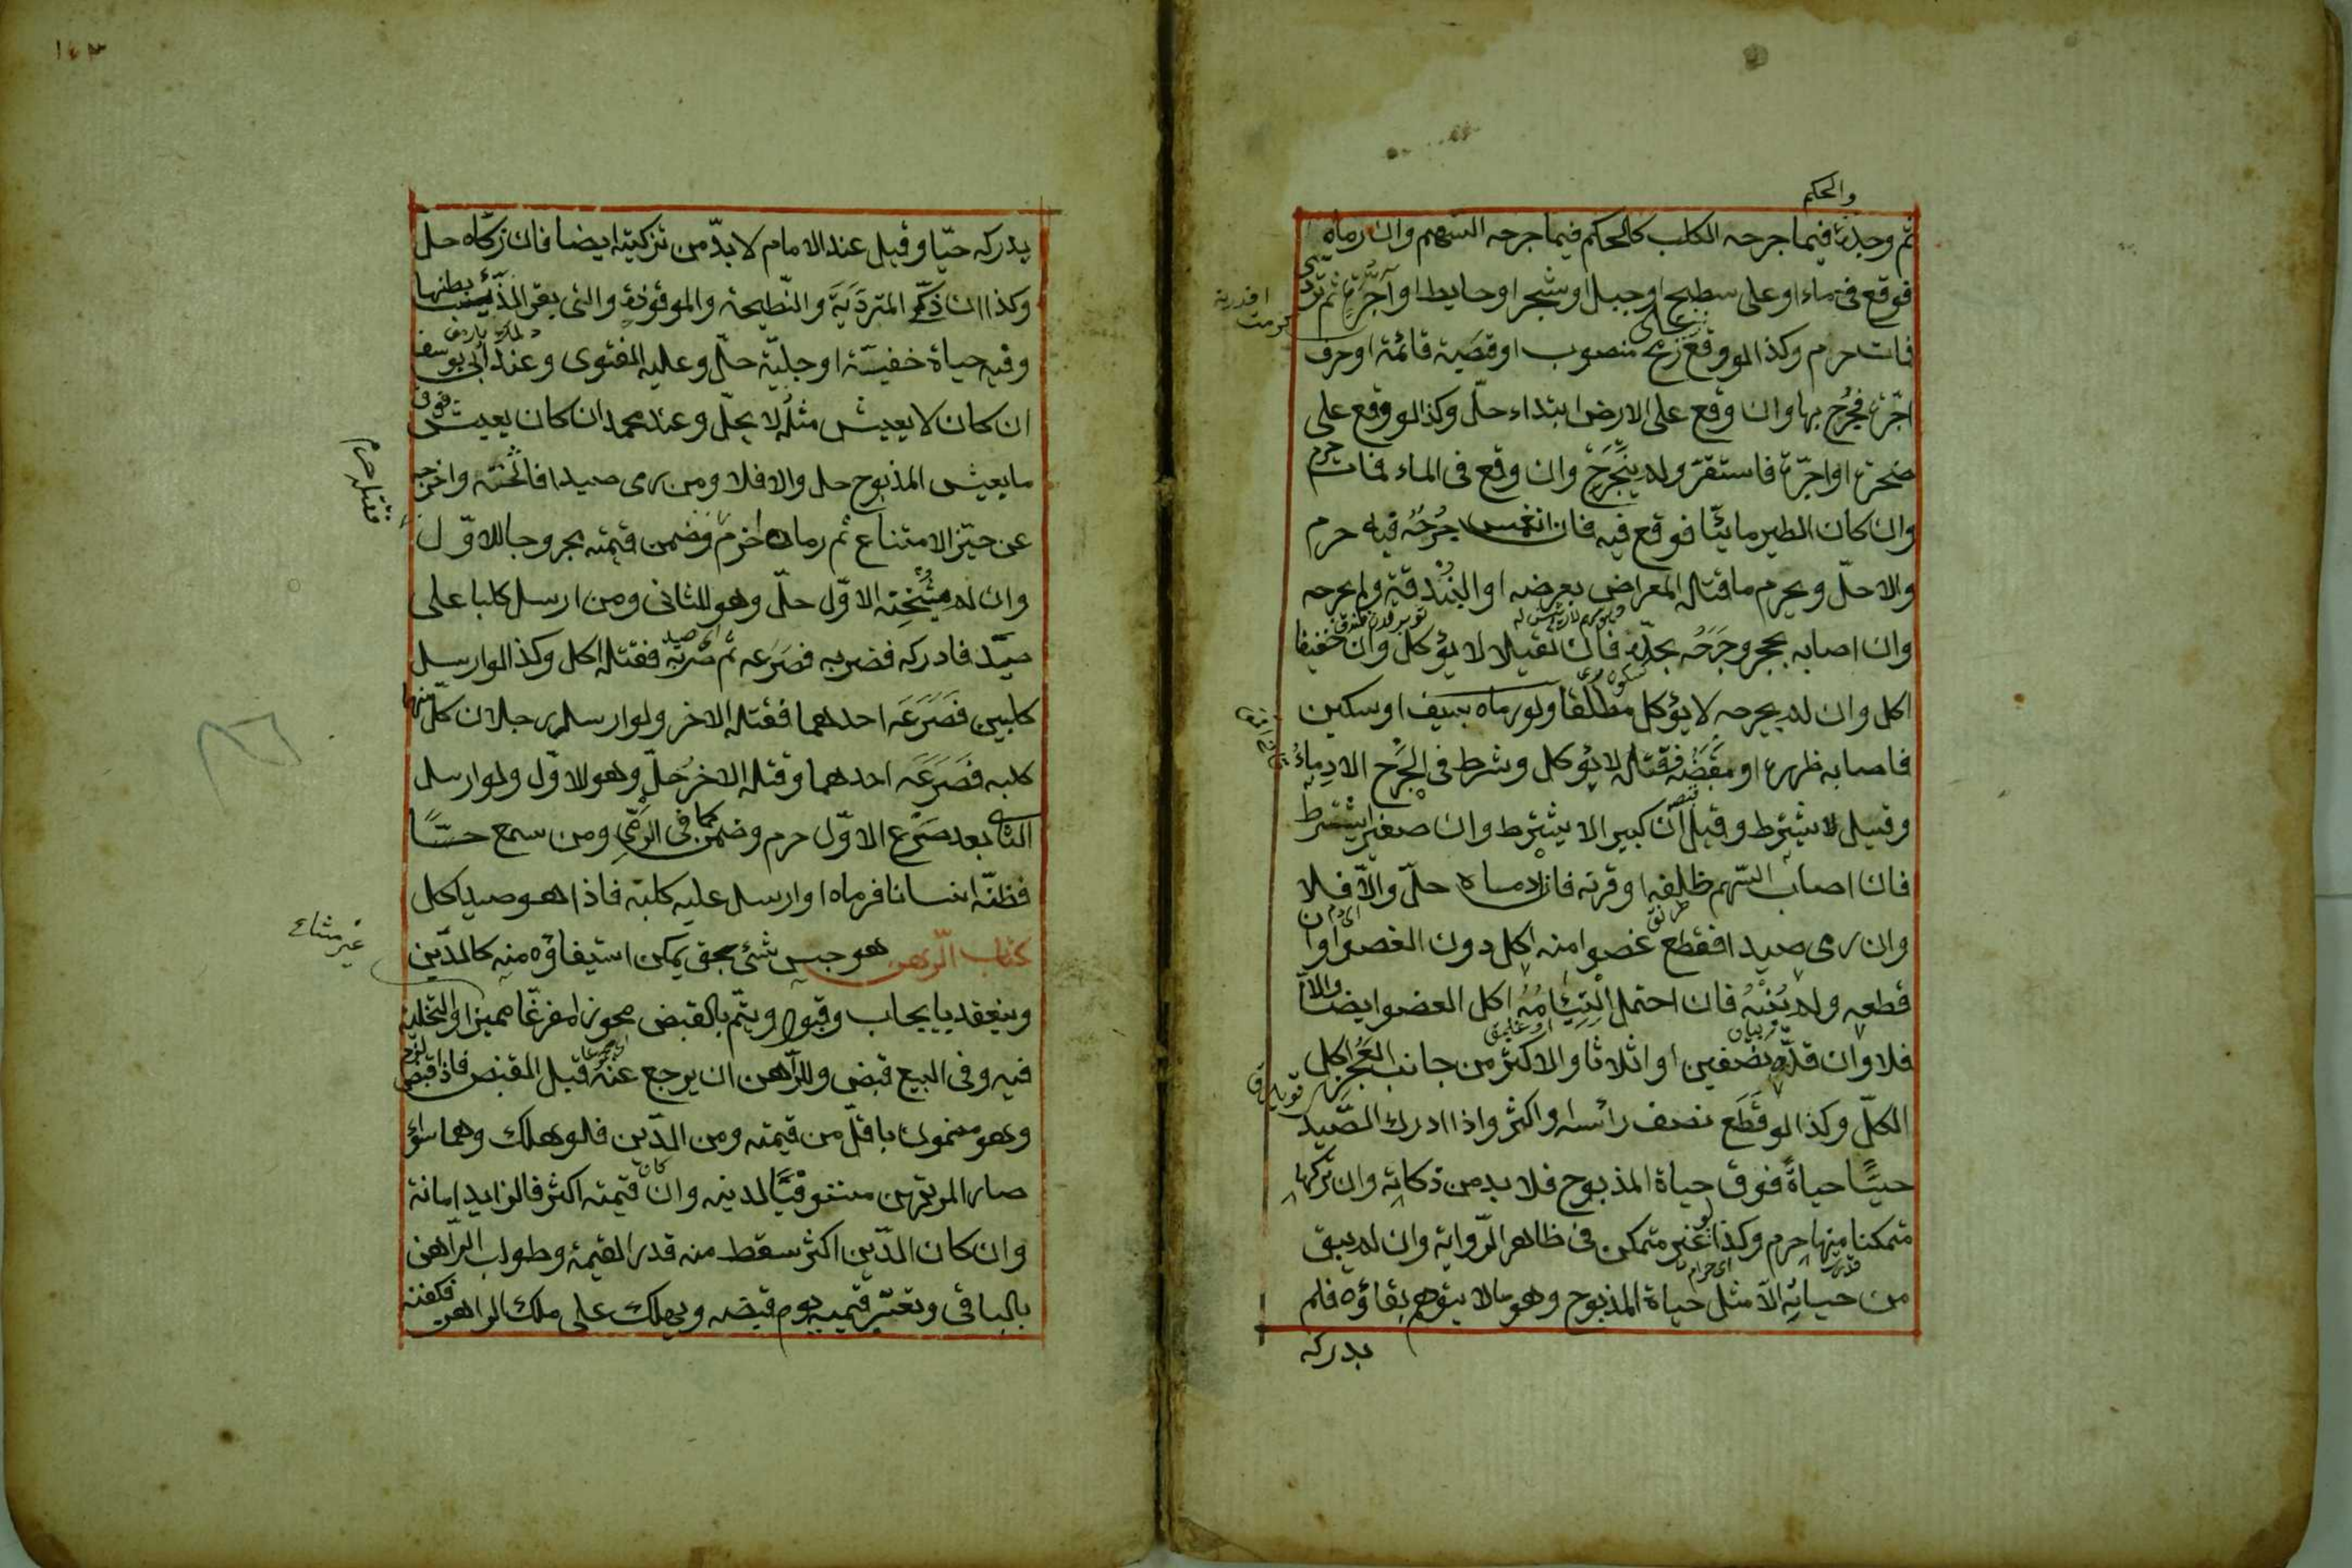 والحكم
ثم وجده فيما جرحه الكلب كالحكم فيما جرحه السهم وان رماه
فوقع فى ماء او على سطح او جبل او شجر او حايط او آجرة ثم تردى
فمات حرم وكذا لو وقع على رمح منصوب او قصبة قائمة او حرف
اجرة فجرح بها وان وقع على الارض ابتداء حلّ وكذا لو وقع على
صخرة او اجرّة فاستقرّ ولم ينجرح وان وقع فى الماء فمات حرم
وان كان الطير مائيّا فوقع فيه فان انغمس جرحه فيه حرم
والا حلّ ويحرم ما قتله المعراض بعرضه او البندقة ولم يجرحه
وان اصابه بحجر وجرحه بحدّه فان ثقيلا لا يؤكل وان خفيفا
اكل وان لم يجرحه لا يؤكل مطلقا ولو رماه بسيف او سكين
فاصابه ظهره او مقبضه فقتله لا يؤكل وشرط فى الجرح الادماء
وقيل لا يشترط وقيل ان كبيرا لا يشترط وان صغيرا يشترط
فان اصاب السّهم ظلفه او قرنه فان ادماه حلّ والاّ فلا
وان رمى صيدا فقطع عضوا منه اكل دون العضو وان
قطعه ولم يبنه فان احتمل التيامه اكل العضو ايضا والاّ
فلا وان قدّه نصفين او اثلاثا والاكثر من جانب العجز اكل
الكلّ وكذا لو قطع نصف رأسه او اكثر واذا ادرك الصّيد
حيّا حياةً فوق حياة المذبوح فلا بد من ذكاته وان تركها
متمكنا منها حرم وكذا لو غير متمكن فى ظاهر الرّواية وان لم يبق
من حياته الاّ مثل حياة المذبوح وهو ما لا يتوهم بقاؤه فلم
يدركه
١٤٣
يدركه حيّا وقيل عند الامام لا بدّ من تزكيته ايضا فان زكّاه حل
وكذا ان ذكّى المتردّية والنّطيحة والموقوذة والتى بقر الذّئب بطنها
وفيه حياة خفيّة او جليّة حلّ وعليه الفتوى وعند ابى يوسف
ان كان لا يعيش مثله لا يحلّ وعند محمد ان كان يعيش فوق
ما يعيش المذبوح حل والا فلا ومن رمى صيدا فاثخنه واخرجه
عن حيّز الامتناع ثم رماه اخر حرم وضمن قيمته مجروحا للاوّل
فقتله حرم
وان لم يثخنه الاوّل حلّ وهو للثانى ومن ارسل كلبا على
صيد فادركه فضربه فصرعه ثم ضربه فقتله اكل وكذا لو ارسل
كلبين فصرعه احدهما فقتله الاخر ولو ارسل رجلان كلّ منهما
كلبه فصرعه احدهما وقتله الاخر حلّ وهو للاوّل ولو ارسل
الثانى بعد صرع الاوّل حرم وضمن كما فى الرّمى ومن سمع حسّا
فظنّه انسانا فرماه او ارسل عليه كلبه فاذا هو صيد اكل
كتاب الرّهن هو حبس شئ بحق يمكن استيفاؤه منه كالدّين
غير مشاع
وينعقد بايجاب وقبول ويتمّ بالقبض محوزا مفرغا مميزا والتخلية
فيه وفى البيع قبض وللرّاهن ان يرجع عنه قبل القبض فاذا قبض لزم
وهو مضمون باقلّ من قيمته ومن الدّين فلو هلك وهما سواء
صار المرتهن مستوفيّا لدينه وان كان قيمته اكثر فالزايد امانة
وان كان الدّين اكثر سقط منه قدر القيمة وطولب الرّاهن
بالباقى وتعتبر قيمته يوم قبضه ويهلك على ملك الراهن فكفنه